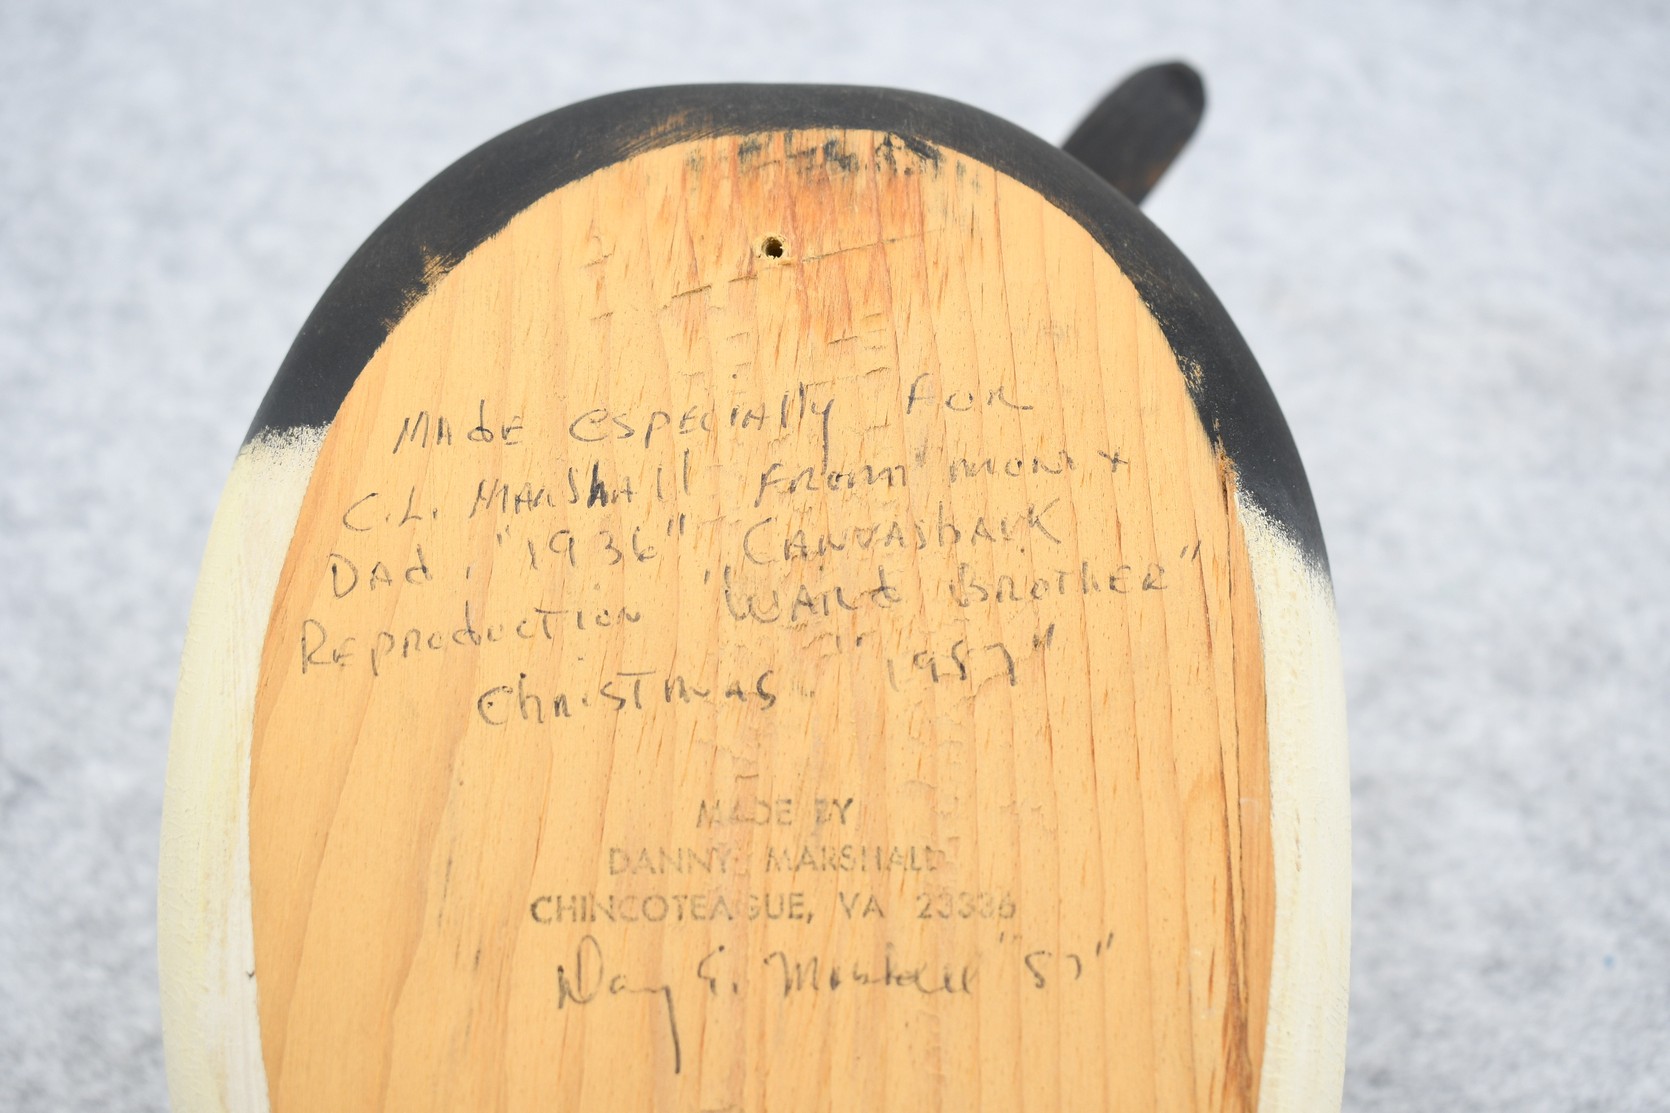 Made especially for
C.L. Marshall from mom +
Dad. "1936" Canvasback
Reproduction "Ward Brother"
Christmas "1987"
MADE BY
DANNY MARSHALL
CHINCOTEAGUE, VA 23336
Dany E. Marshall "87"